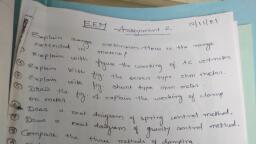 EEM Assignment 2
Explain range extension. How is the range
extended in meters?
Explain with figure the working of AC voltmeter.
Explain with fig the series type ohm meter.
Explain with fig shunt type ohm meter.
Draw the fig & explain the working of clamp
on meter
Draw a neat diagram of spring control method.
Draw a neat diagram of gravity control method.
Compare the three methods of damping